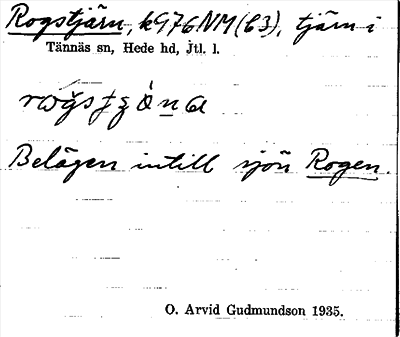 Rogstjärn, k976NM(C3), tjärn i
Tännäs sn, Hede hd, Jtl. l.
Belägen intill sjön Rogen.
O. Arvid Gudmundson 1935.